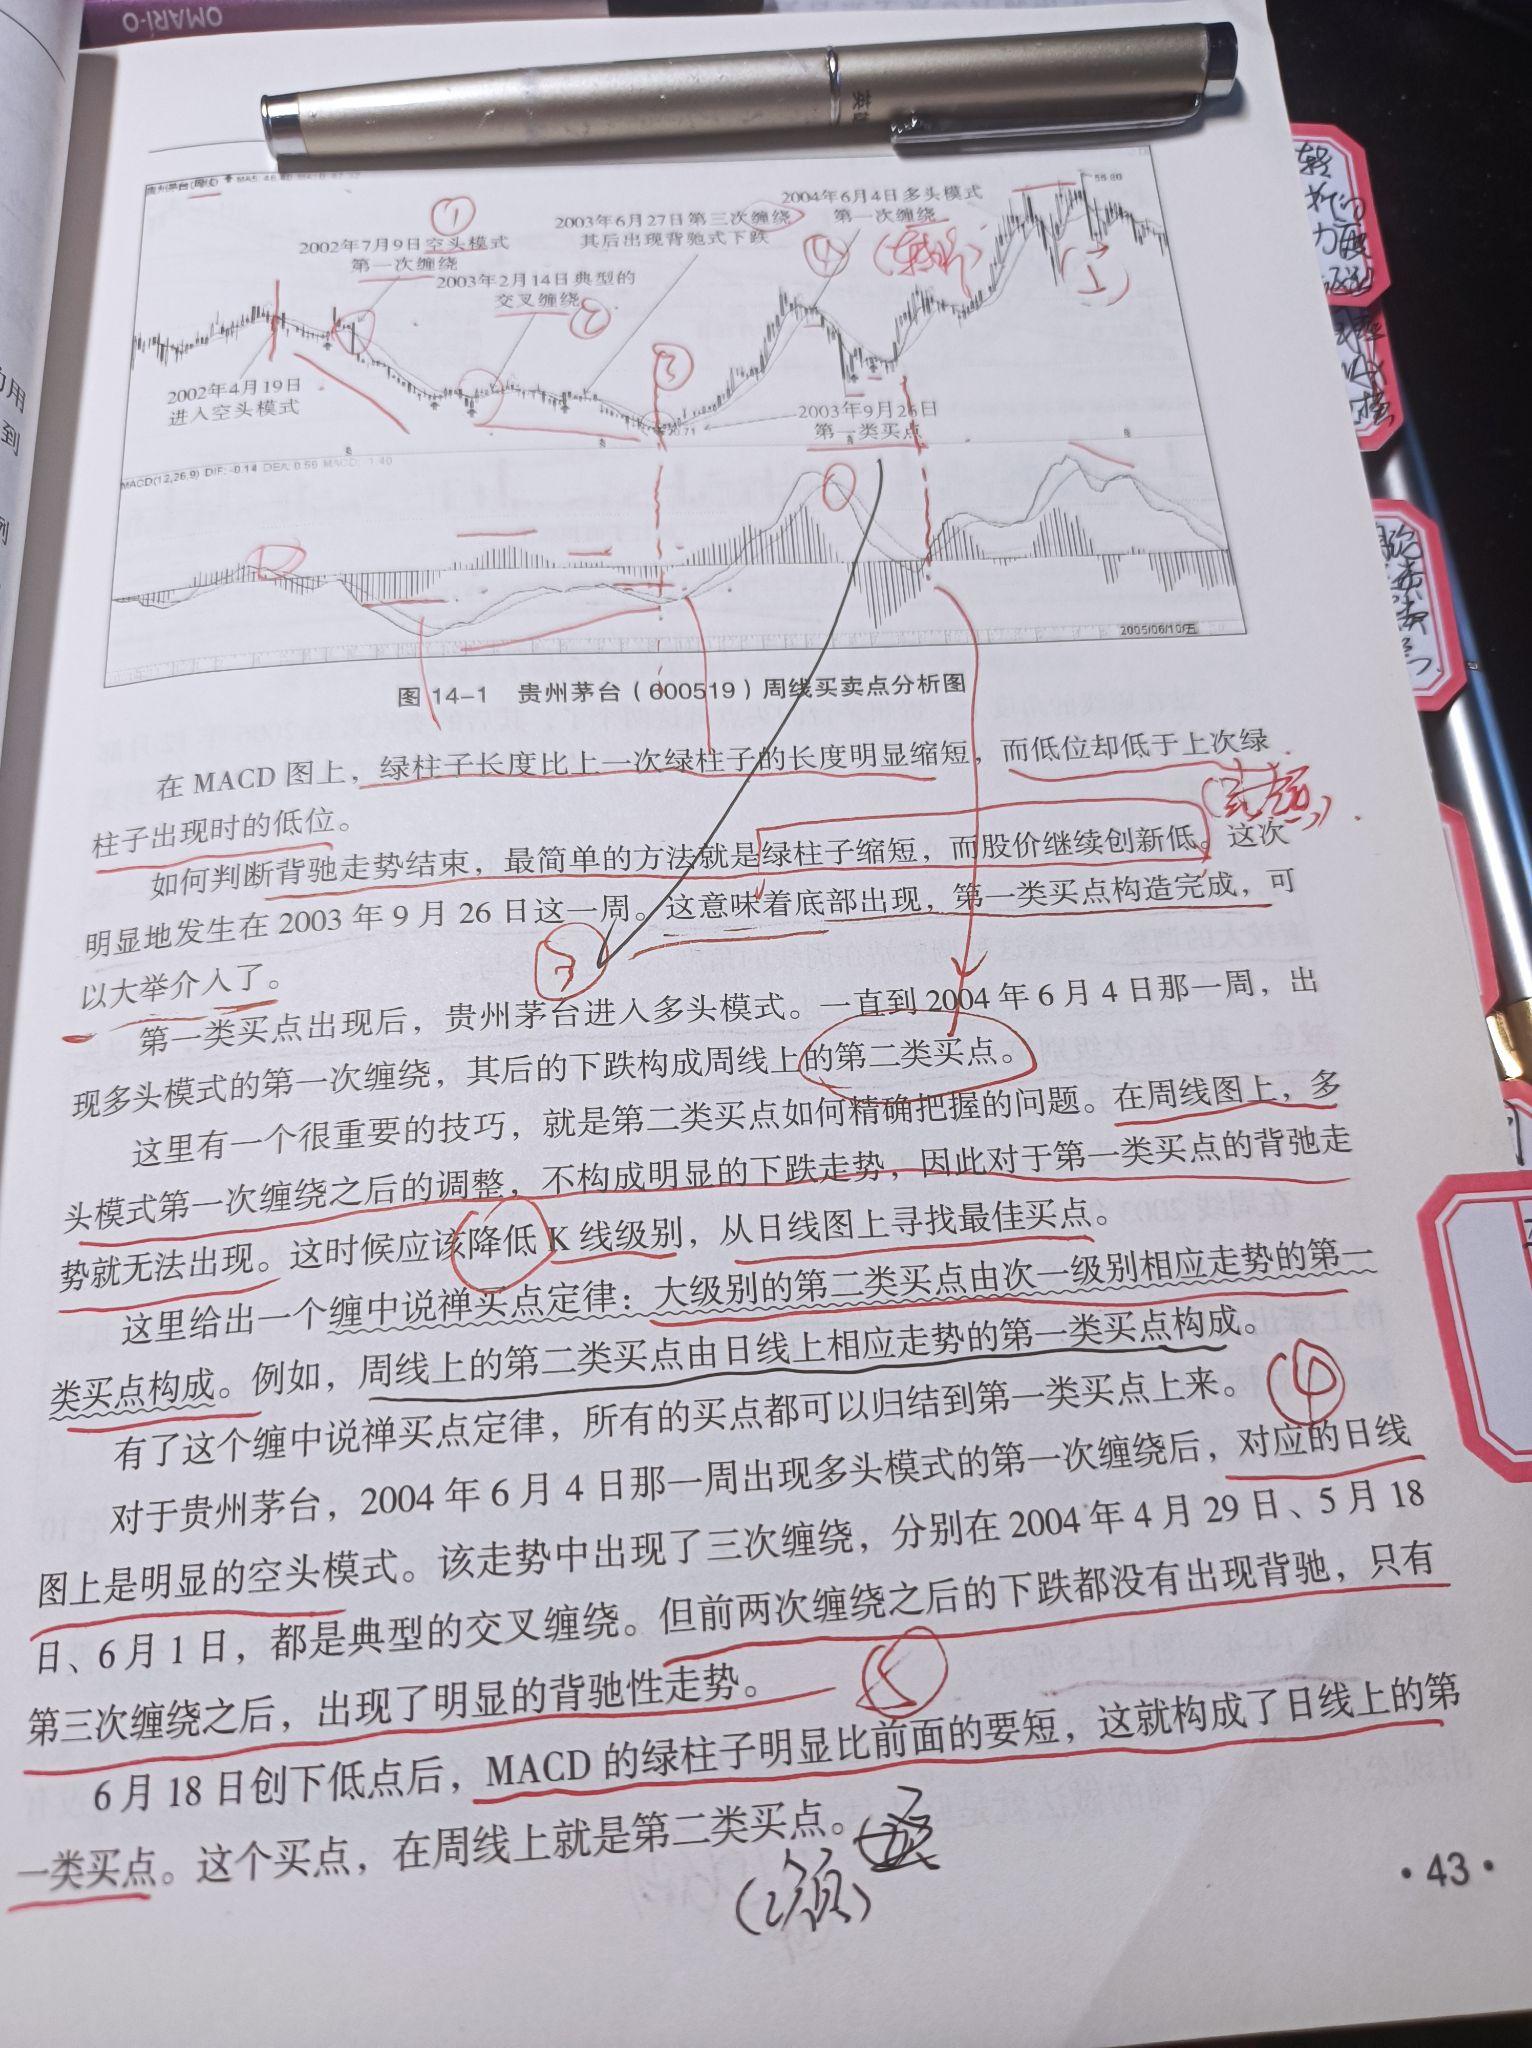 OMARI-O
英雄
贵州茅台(周线)
55.80
2004年6月4日多头模式
第一次缠绕
①
2003年6月27日第三次缠绕
其后出现背驰式下跌
2002年7月9日空头模式
第一次缠绕
④
2003年2月14日典型的
交叉缠绕
②
③
2002年4月19日
进入空头模式
20.71
2003年9月26日
第一类买点
MACD(12,26,9) DIF: -0.14 DEA: 0.56 MACD: -1.40
2005/06/10/五
图 14-1 贵州茅台（600519）周线买卖点分析图
在 MACD 图上，绿柱子长度比上一次绿柱子的长度明显缩短，而低位却低于上次绿
柱子出现时的低位。
如何判断背驰走势结束，最简单的方法就是绿柱子缩短，而股价继续创新低。这次
明显地发生在 2003 年 9 月 26 日这一周。这意味着底部出现，第一类买点构造完成，可
以大举介入了。
第一类买点出现后，贵州茅台进入多头模式。一直到 2004 年 6 月 4 日那一周，出
现多头模式的第一次缠绕，其后的下跌构成周线上的第二类买点。
这里有一个很重要的技巧，就是第二类买点如何精确把握的问题。在周线图上，多
头模式第一次缠绕之后的调整，不构成明显的下跌走势，因此对于第一类买点的背驰走
势就无法出现。这时候应该降低 K 线级别，从日线图上寻找最佳买点。
这里给出一个缠中说禅买点定律：大级别的第二类买点由次一级别相应走势的第一
类买点构成。例如，周线上的第二类买点由日线上相应走势的第一类买点构成。
有了这个缠中说禅买点定律，所有的买点都可以归结到第一类买点上来。
④
对于贵州茅台，2004 年 6 月 4 日那一周出现多头模式的第一次缠绕后，对应的日线
图上是明显的空头模式。该走势中出现了三次缠绕，分别在 2004 年 4 月 29 日、5 月 18
日、6 月 1 日，都是典型的交叉缠绕。但前两次缠绕之后的下跌都没有出现背驰，只有
第三次缠绕之后，出现了明显的背驰性走势。
6 月 18 日创下低点后，MACD 的绿柱子明显比前面的要短，这就构成了日线上的第
一类买点。这个买点，在周线上就是第二类买点。
·43·